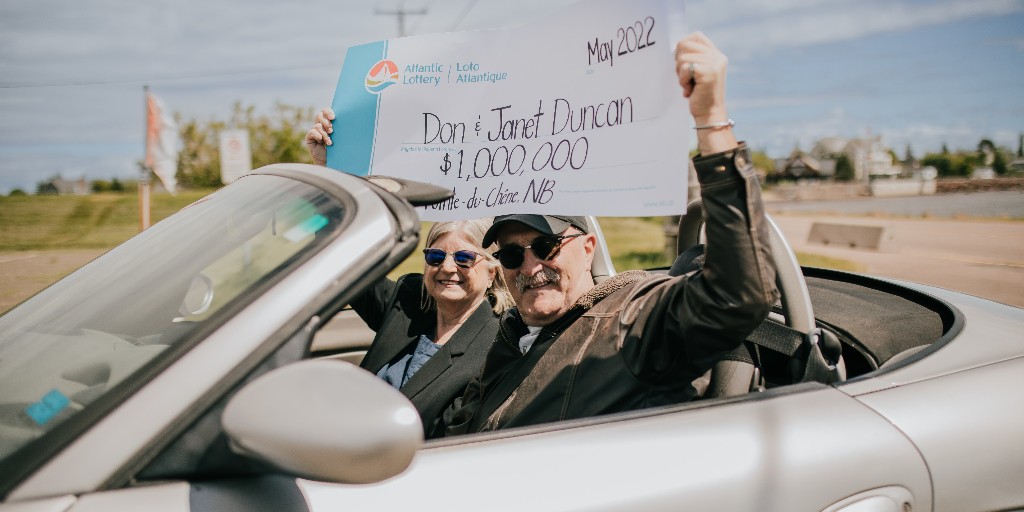 Atlantic Lottery
Loto Atlantique
May 2022
Don & Janet Duncan
$1,000,000
Pointe-du-Chêne, NB